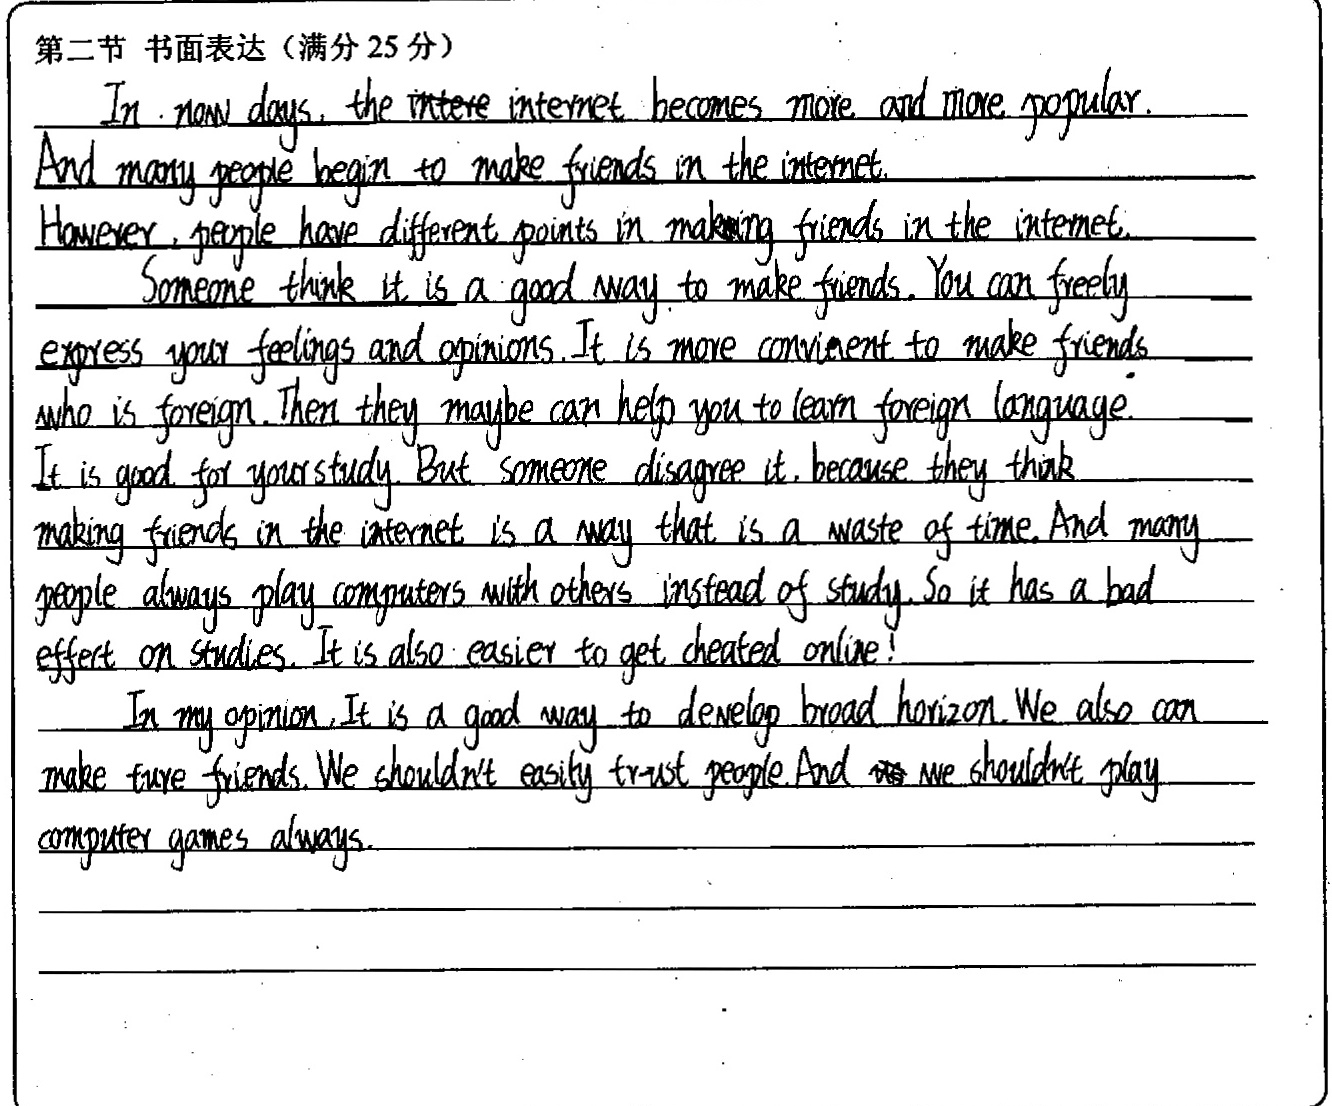 第二节 书面表达（满分 25 分）
In now days, the intere internet becomes more and more popular.
And many people begin to make friends in the internet.
However, people have different points in making friends in the internet.
Someone think it is a good way to make friends. You can freely
express your feelings and opinions. It is more convinent to make friends
who is foreign. Then they maybe can help you to learn foreign language.
It is good for your study. But someone disagree it, because they think
making friends in the internet is a way that is a waste of time. And many
people always play computers with others instead of study. So it has a bad
effect on studies. It is also easier to get cheated online!
In my opinion, It is a good way to develop broad horizon. We also can
make ture friends. We shouldn't easily trust people. And we shouldn't play
computer games always.